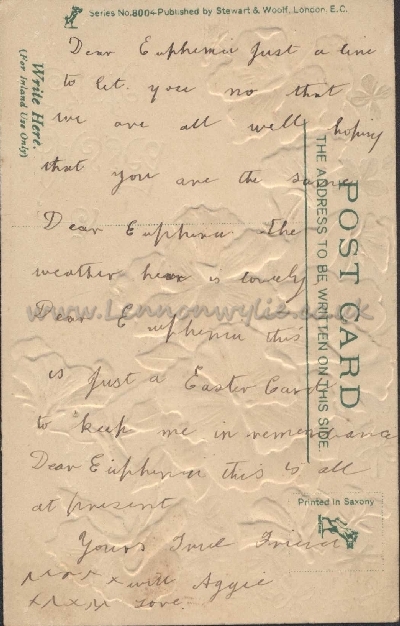 Series No. 8004 Published by Stewart & Woolf, London, E.C.
Write Here.
(For Inland Use Only)
POST CARD
THE ADDRESS TO BE WRITTEN ON THIS SIDE.
Dear Euphemia just a line
to let you no that
we are all well hoping
that you are the same
Dear Euphemia the
weather hear is lovely
Dear Euphemia this
is just a Easter Card
to keep me in rememerance
Dear Euphemia this is all
at present
Yours True Friend
x x x x with Aggie
x x x x x Love
Printed in Saxony
www.Lennonwylie.co.uk